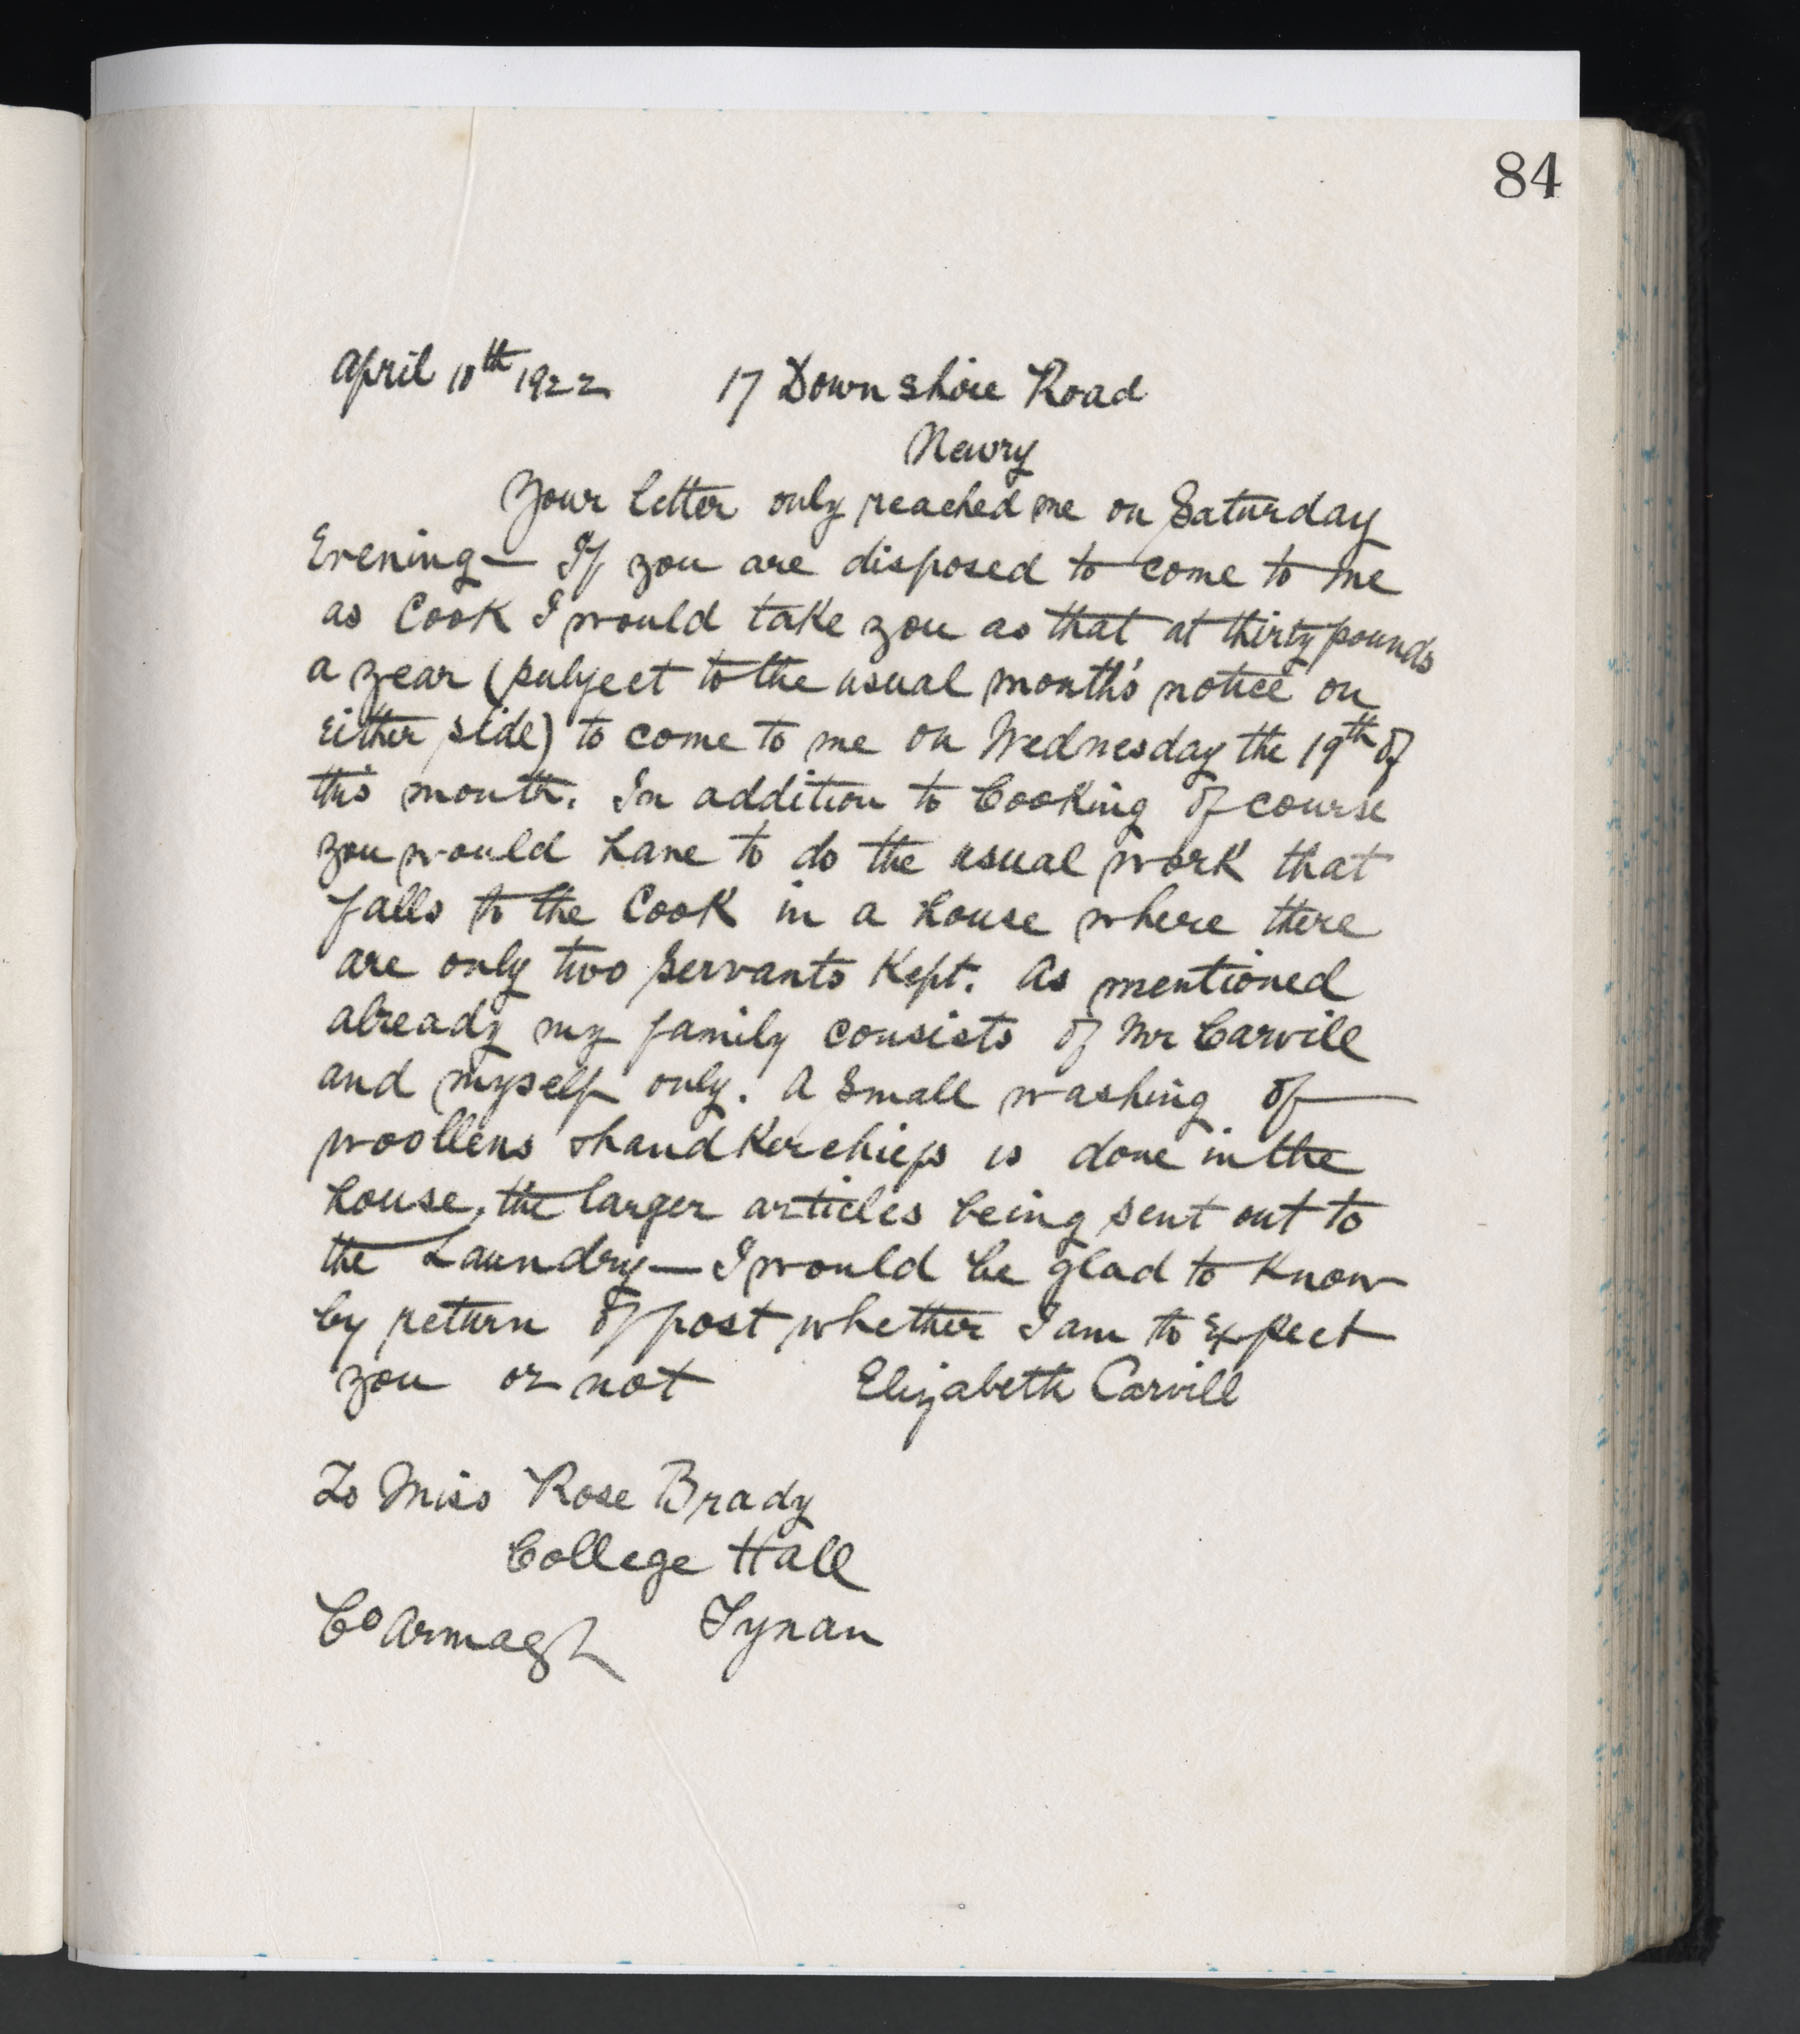 84
April 10th 1922 17 Downshire Road
Newry
Your letter only reached me on Saturday
Evening — If you are disposed to come to me
as Cook I would take you as that at thirty pounds
a year (subject to the usual month's notice on
either side) to come to me on Wednesday the 19th of
this month. In addition to Cooking of course
you would have to do the usual work that
falls to the Cook in a house where there
are only two servants kept. As mentioned
already my family consists of Mr Carvill
and myself only. A small washing of
woollens & handkerchiefs is done in the
house, the larger articles being sent out to
the Laundry — I would be glad to know
by return of post whether I am to expect
you or not Elizabeth Carvill
To Miss Rose Brady
College Hall
Co Armagh Tynan